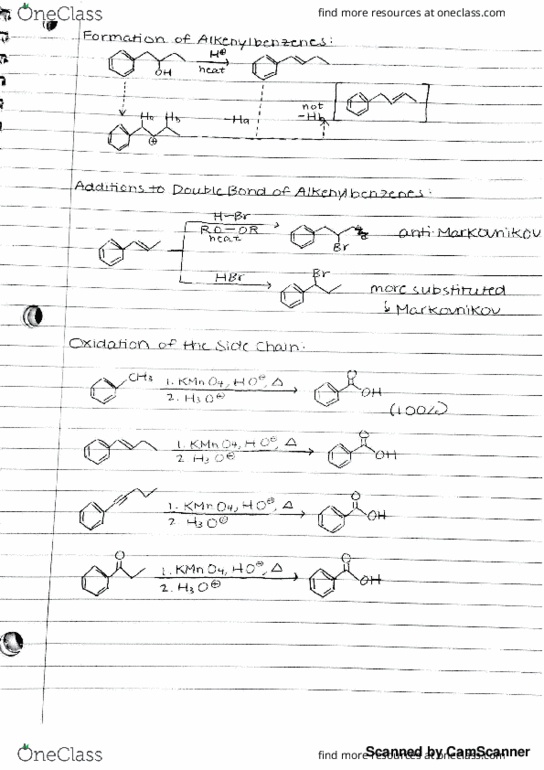 OneClass find more resources at oneclass.com
Formation of Alkenylbenzenes:
OH H⊕ heat
Ha Hb ⊕ -Ha not -Hb
Additions to Double Bond of Alkenylbenzenes:
H-Br
RO-OR
heat Br anti-Markovnikov
HBr Br more substituted
↳ Markovnikov
Oxidation of the Side Chain:
CH3 1. KMnO4, HO⊖, Δ O OH
2. H3O⊕ (100%)
1. KMnO4, HO⊖, Δ O OH
2 H3O⊕
1. KMnO4, HO⊖, Δ O OH
2 H3O⊕
O 1. KMnO4, HO⊖, Δ O OH
2. H3O⊕
OneClass find more resources at oneclass.com
Scanned by CamScanner